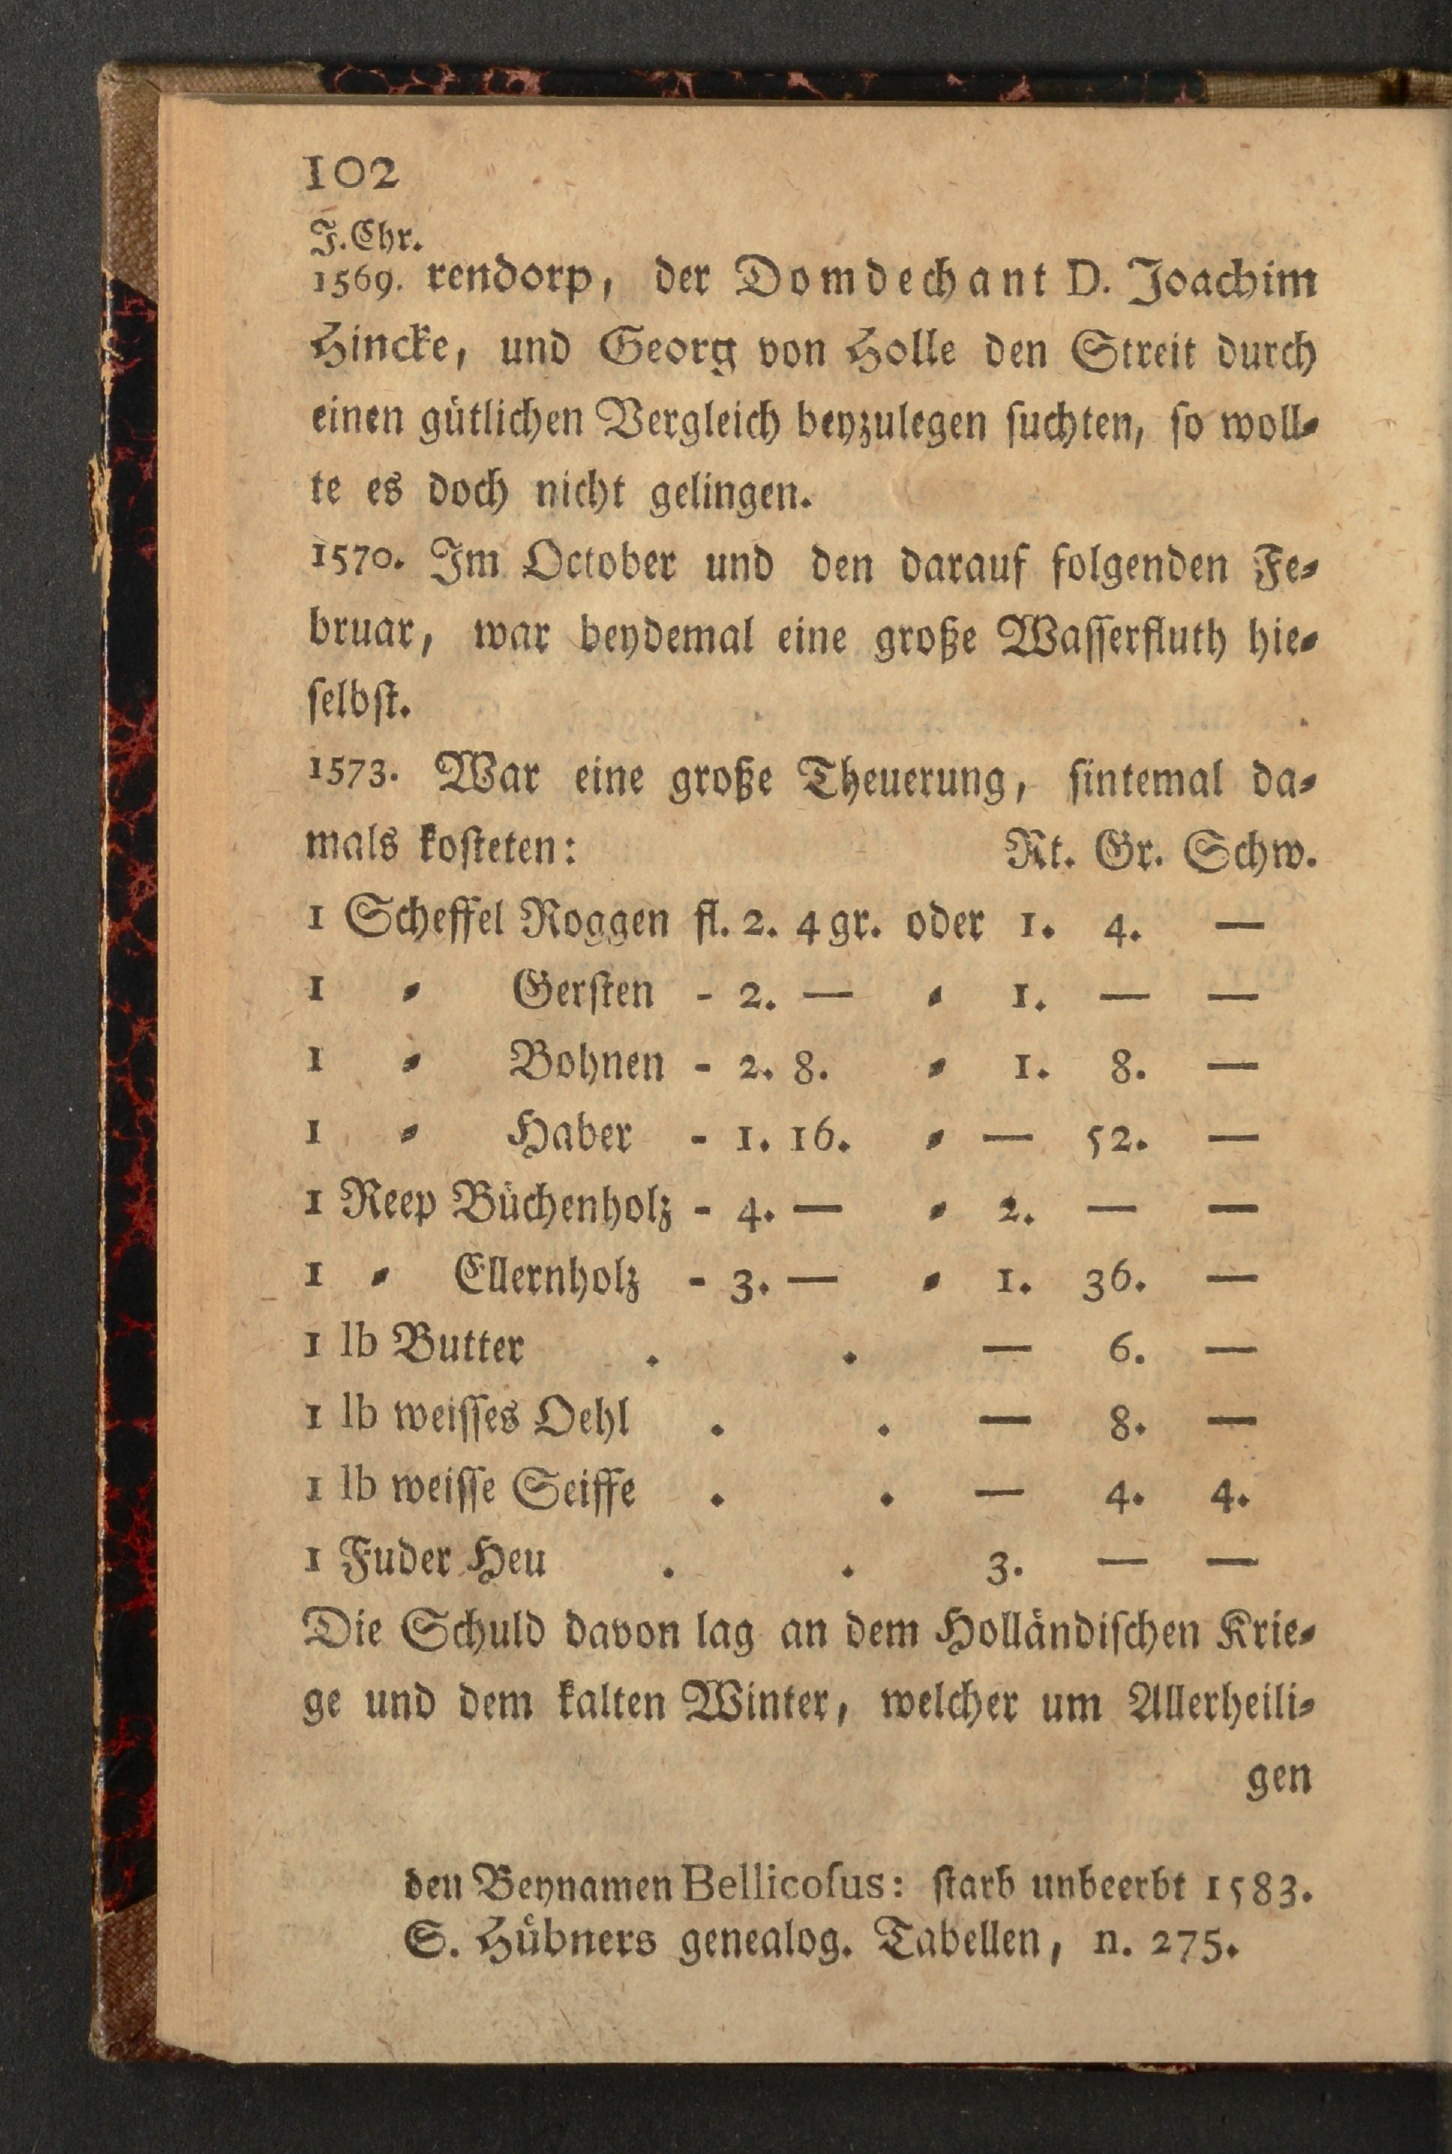 102
J. Chr.
1569. rendorp, der Domdechant D. Joachim
Hincke, und Georg von Holle den Streit durch
einen gütlichen Vergleich beyzulegen suchten, so woll-
te es doch nicht gelingen.
1570. Im October und den darauf folgenden Fe-
bruar, war beydemal eine große Wasserfluth hie-
selbst.
1573. War eine große Theuerung, sintemal da-
mals kosteten: Rt. Gr. Schw.
1 Scheffel Roggen fl. 2. 4 gr. oder 1. 4. —
1 - Gersten - 2. — - 1. — —
1 - Bohnen - 2. 8. - 1. 8. —
1 - Haber - 1. 16. - — 52. —
1 Reep Büchenholz - 4. — - 2. — —
1 - Ellernholz - 3. — - 1. 36. —
1 lb Butter . . — 6. —
1 lb weisses Oehl . . — 8. —
1 lb weisse Seiffe . . — 4. 4.
1 Fuder Heu . . 3. — —
Die Schuld davon lag an dem Holländischen Krie-
ge und dem kalten Winter, welcher um Allerheili-
gen
den Beynamen Bellicoſus: starb unbeerbt 1583.
S. Hübners genealog. Tabellen, n. 275.